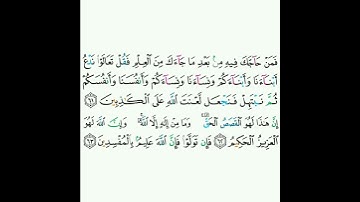 فَمَنْ حَاجَّكَ فِيهِ مِنۢ بَعْدِ مَا جَآءَكَ مِنَ ٱلْعِلْمِ فَقُلْ تَعَالَوْا۟ نَدْعُ
أَبْنَآءَنَا وَأَبْنَآءَكُمْ وَنِسَآءَنَا وَنِسَآءَكُمْ وَأَنفُسَنَا وَأَنفُسَكُمْ
ثُمَّ نَبْتَهِلْ فَنَجْعَل لَّعْنَتَ ٱللَّهِ عَلَى ٱلْكَٰذِبِينَ ٦١
إِنَّ هَٰذَا لَهُوَ ٱلْقَصَصُ ٱلْحَقُّ ۚ وَمَا مِنْ إِلَٰهٍ إِلَّا ٱللَّهُ ۚ وَإِنَّ ٱللَّهَ لَهُوَ
ٱلْعَزِيزُ ٱلْحَكِيمُ ٦٢ فَإِن تَوَلَّوْا۟ فَإِنَّ ٱللَّهَ عَلِيمٌۢ بِٱلْمُفْسِدِينَ ٦٣